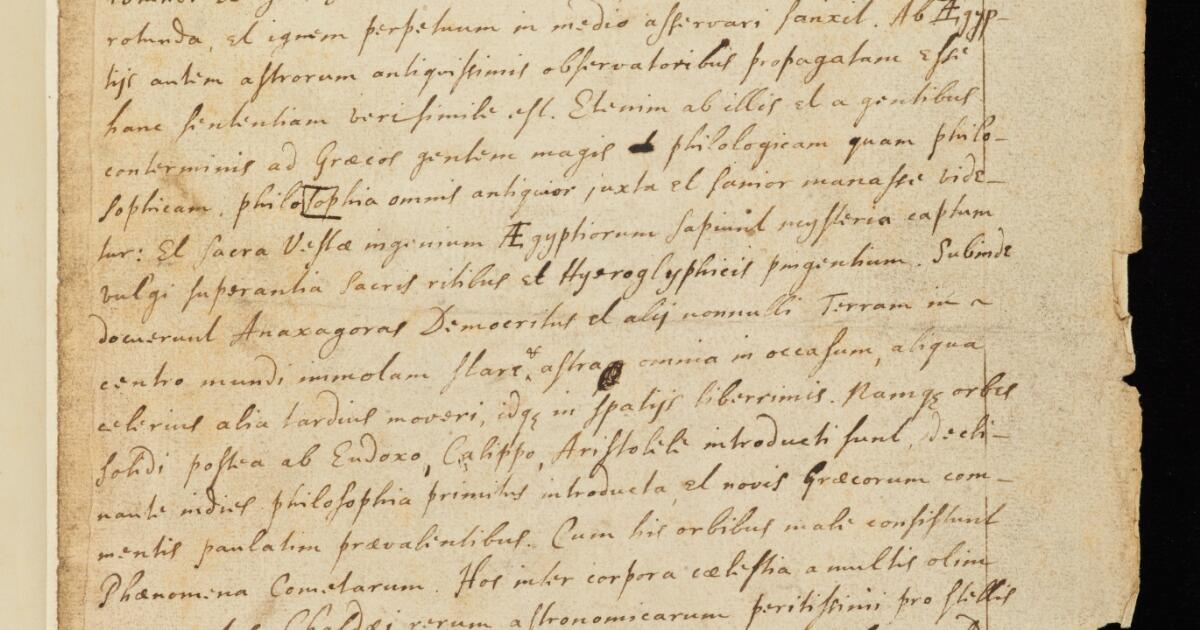 rotunda, et ignem perpetuum in medio asservari sanxit. Ab Ægyp-
tijs autem astrorum antiquissimis observatoribus propagatam esse
hanc sententiam verisimile est. Etenim ab illis et a gentibus
conterminis ad Græcos gentem magis philologicam quam philo-
sophicam, philosophia omnis antiquior juxta et sanior manasse vide-
tur: Et sacra Vestæ ingenium Ægyptiorum sapiunt mysteria captum
vulgi superantia sacris ritibus et Hyeroglyphicis pingentium. Subinde
docuerunt Anaxagoras Democritus et alij nonnulli Terram in
centro mundi immotam stare & astra omnia in occasum, aliqua
celerius alia tardius moveri, idq in spatijs liberrimis. Namq orbes
solidi postea ab Eudoxo, Calippo, Aristotele introducti sunt, decli-
nante indies philosophia primitus introducta, et novis Græcorum com-
mentis paulatim prævalentibus. Cum his orbibus male consistunt
Phænomena Cometarum. Hos inter corpora cælestia a multis olim
Chaldæi rerum astronomicarum peritissimi pro stellis